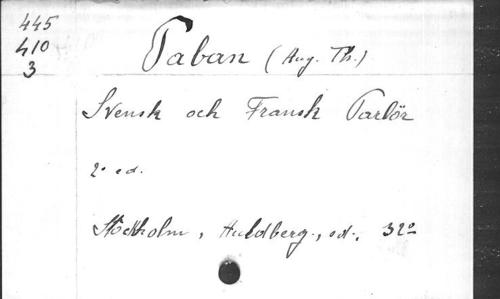 445
410
3
Paban (Aug. Th.)
Svensk och Fransk Parlör
2° ed.
Stockholm, Huldberg., sd., 32°